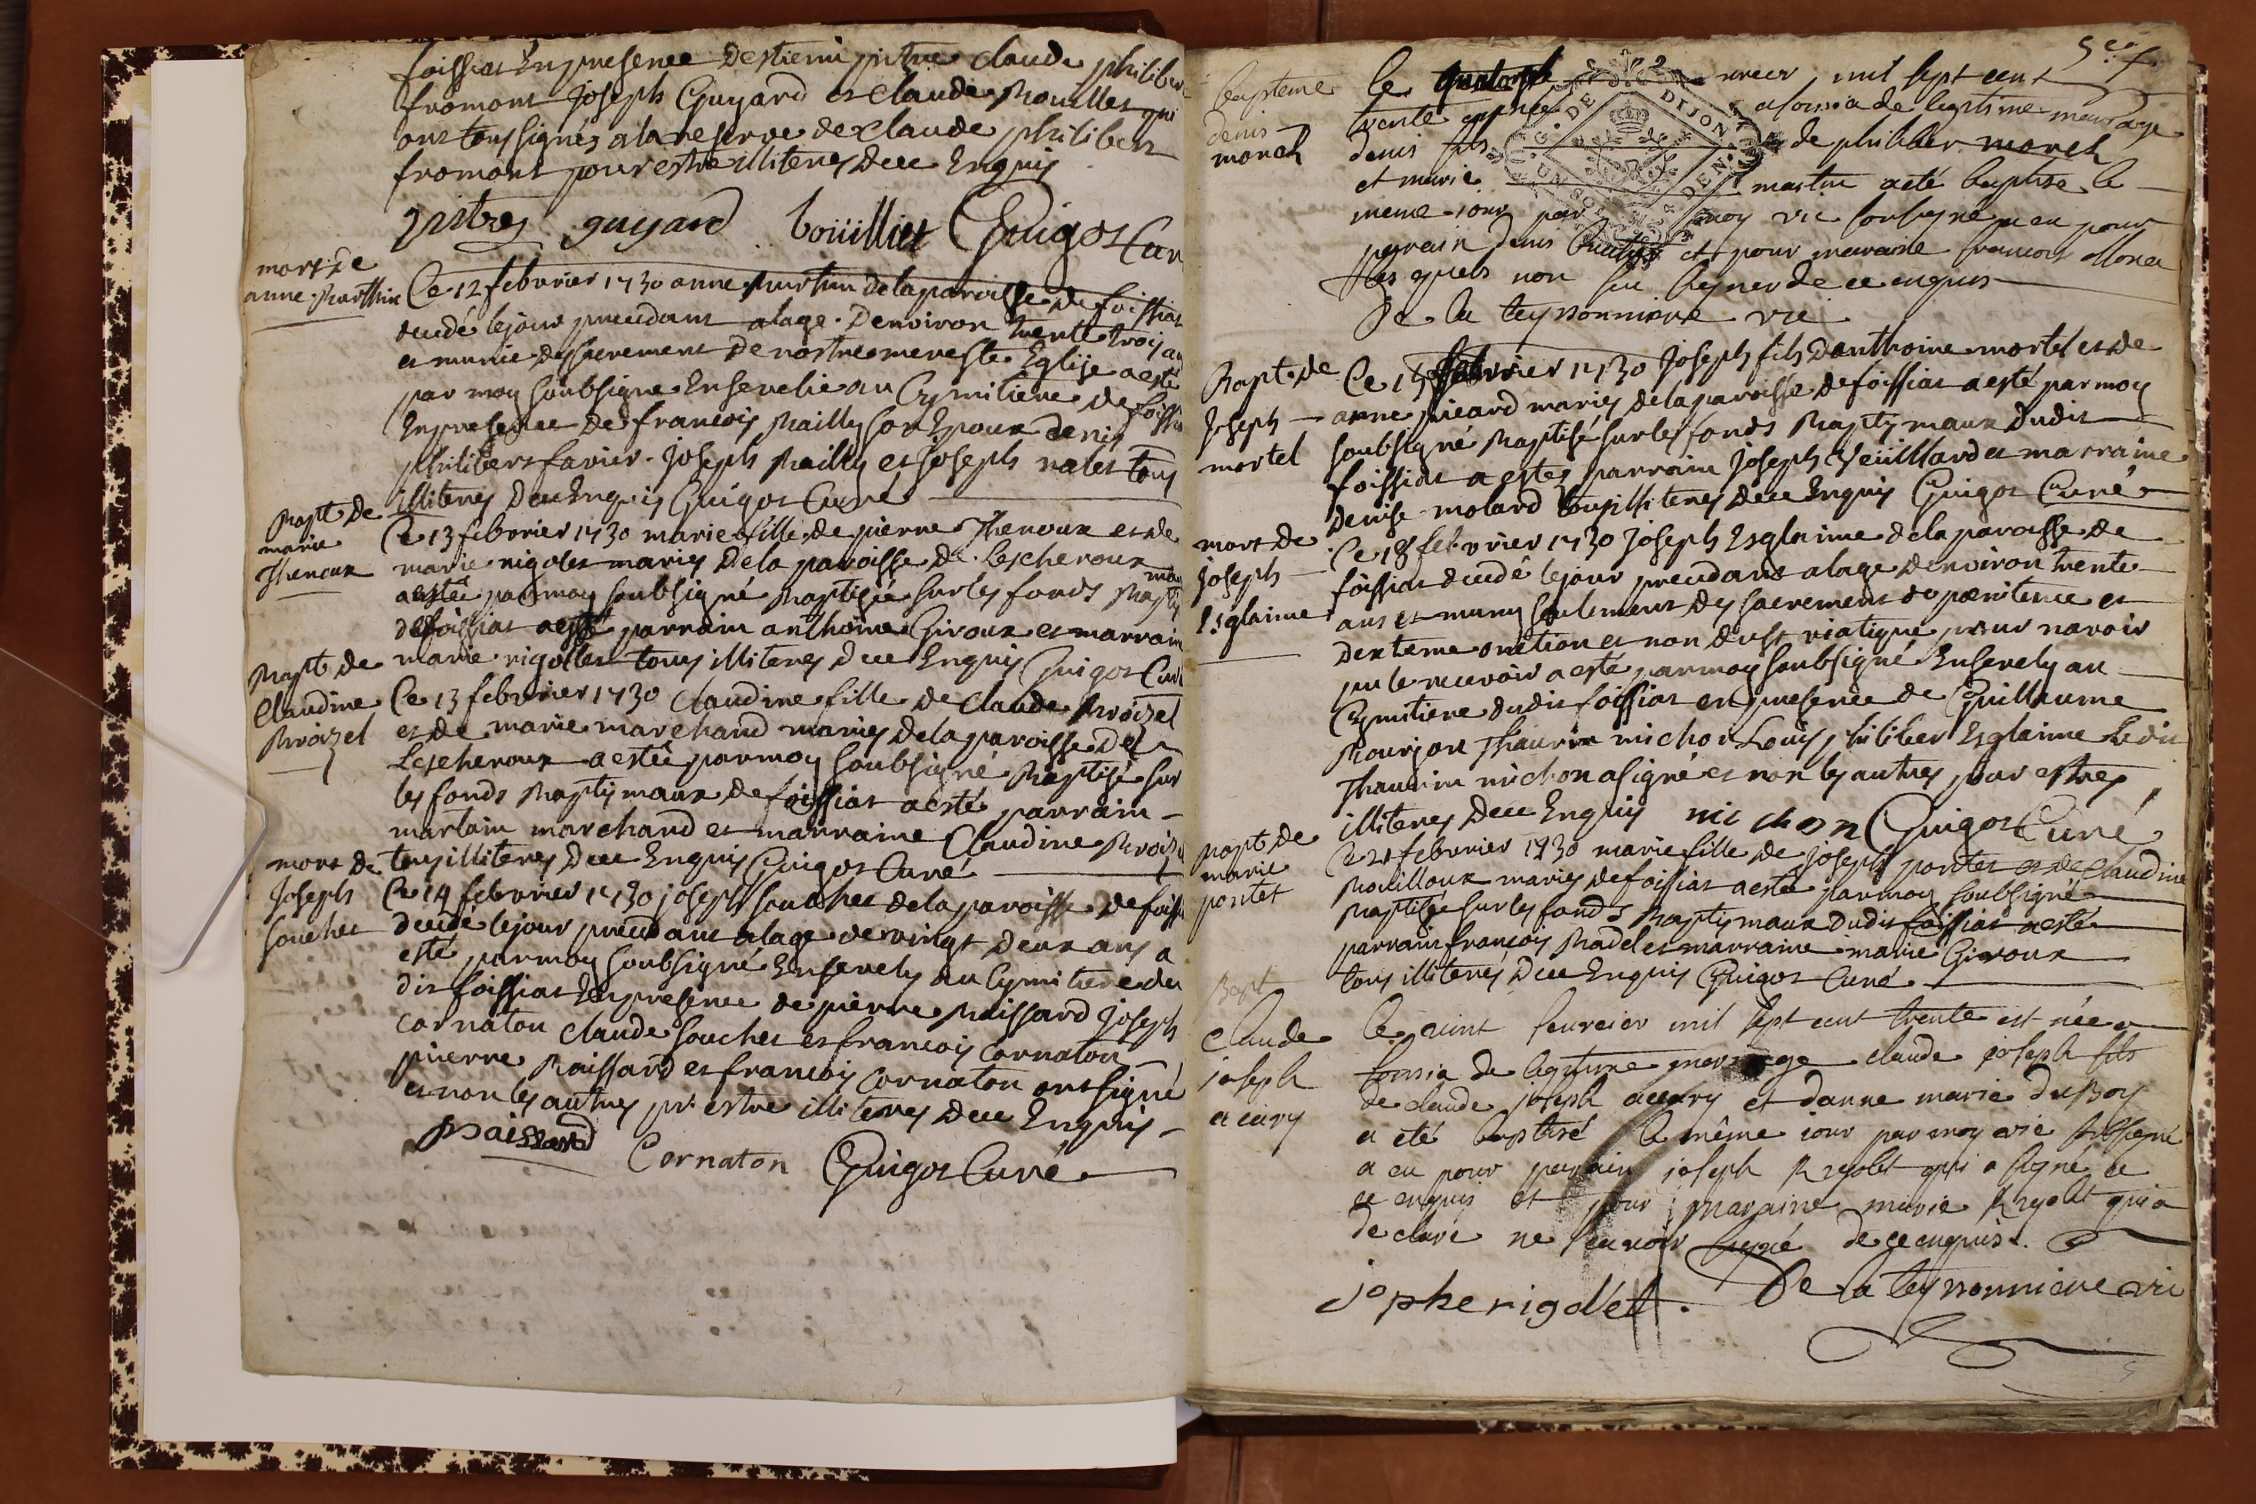 foissiat En presence Destienne pistre Claude philiber
fromont Joseph Guyard et Claude Bouillet qui
ont tous signés a la reserve de Claude philibert
fromont pour estre illiterés Duu Enquis
pistres guyard boüilliet Guigot Cur
mort de
anne Marthin
Ce 12 febvrier 1730 anne Marthin de la paroisse de foissiat
decedé le jour precedant alage Denviron trente trois an
et munie des sacrement De nostre mere ste Eglise a esté
par moy soubsigné Ensevelie au Cymitiere de foissia
En presence De francois Bailly son Epoux denis
philibert favier Joseph Bailly et Joseph nalet tous
illiterés Duu Enquis Guigot Curé
Bapt de
marie
Thenoux
Ce 13 febvrier 1730 marie fille de pierre Thenoux et de
marie rigolet mariés De la paroisse De Lescheroux
a esté par moy soubsigné Baptisée sur les fonds Baptis
maux
de foissiat a esté parrain anthoine Giroux et marrain
marie rigollet tous illiterés Duu Enquis Guigot Curé
Bapt de
Claudine
Broizel
Ce 13 febvrier 1730 Claudine fille de Claude Broizel
et de marie marchand mariés de la paroisse De
Lescheroux a esté par moy soubsigné Baptisé sur
les fonds Baptismaux de foissiat a esté parrain
marlain marchand et marraine Claudine Broize
tous illiterés Duu Enquis Guigot Curé
mort de
Joseph
souchet
Ce 14 febvrier 1730 joseph souchet de la paroisse De foissi
decede le jour precedant alage de vingt deux ans a
esté par moy soubsigné Ensevely au Cymitiere du
dit foissiat En presence de pierre Maissard Joseph
Cornaton Claude souchet et francois Cornaton
pierre Maissard et francois Cornaton ont signé
et non les autres pr estre illiterés Duu Enquis
Cornaton Guigot Curé
bapteme
denis
morel
le quatorze
mil sept cent
trente
a foissia de legitime mariage
denis fils
de philiber morel
et marie
martin a eté baptisé le
meme jour par moy vic soubsigné a eu pour
parain denis
et pour maraine francoise
lesquels non
signer de ce enquis
De la teyssonniere vic
G. DE DIJON
UN SOL
DEN.
Bapt de
Joseph
mortel
Ce 15 febvrier 1730 Joseph fils Danthoine mortel et de
anne picard mariés de la paroisse de foissiat a esté par moy
soubsigné Baptisé sur les fonds Baptismaux Dudit
foissiat a estez parrain Joseph Veüillard et marraine
Denise molard tous illiterés Duu Enquis Guigot Curé
mort de
Joseph
Esglaime
Ce 18 febvrier 1730 Joseph Esglaime de la paroisse de
foissiat decedé le jour precedant alage Denviron trente
ans et muny seulement des sacrement de pœnitence et
Dexteme onction et non du st viatique pour navoir
pu le recevoir a esté par moy soubsigné Ensevely au
Cymitiere dudit foissiat en presence de Guillaume
Bourjon Thaurin michon Louis philiber Esglaime Ledit
Thaurin michon a signé et non les autres pour estres
illiterés Duu Enquis michon Guigot Curé
Bapt de
marie
pontet
Ce 21 febvrier 1730 marie fille de Joseph pontet et de Claudine
Bouilloux mariés de foissiat a esté par moy soubsigné
Baptisée sur les fonds Baptismaux Dudit foissiat a esté
parrain francois Badel et marraine marie Giroux
tous illiterés Duu Enquis Guigot Curé
Bapt
claude
joseph
accary
le vint fevreier mil sept cent trente est née a
foissia de legitime mariage claude joseph fils
de claude joseph accary et danne marie Duboy
a eté baptisé le même jour par moy vic subsigné
a eu pour parain joseph Rigolet qui a signé de
ce enquis et pour maraine marie Rigolet qui a
declaré ne scavoir signé de ce enquis
josphe rigollet. De la teyssonniere vic